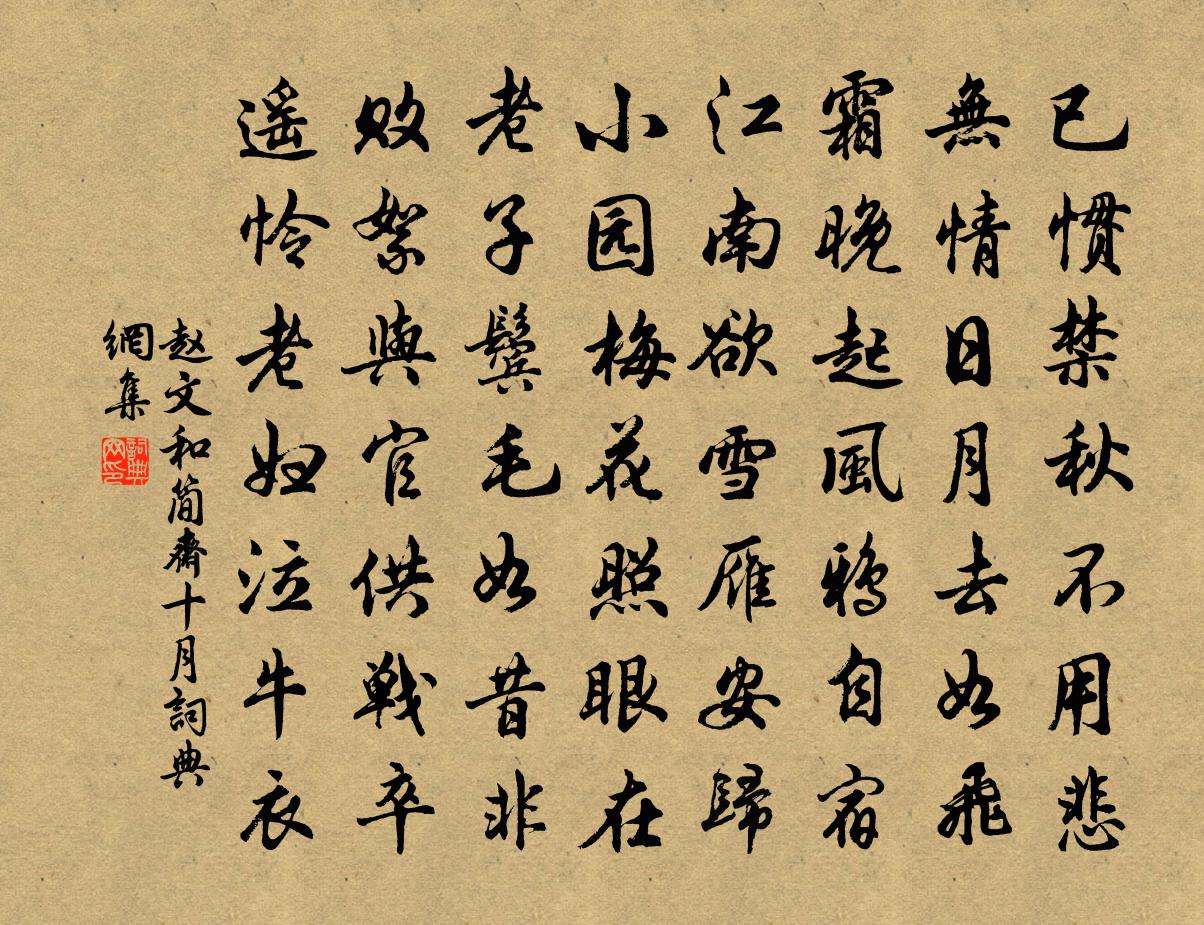 已慣禁秋不用悲
無情日月去如飛
霜晚起風鴉自宿
江南欲雪雁安歸
小园梅花照眼在
老子鬢毛如昔非
败絮與官供戰卒
遥怜老妇泣牛衣
赵文和简齋十月詞典
網集
詞典
网印